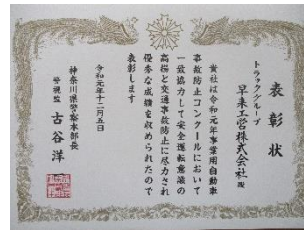 表彰状
トラックグループ
早来工営株式会社殿
貴社は令和元年事業用自動車
事故防止コンクールにおいて
一致協力して安全運転意識の
高揚と交通事故防止に尽力され
優秀な成績を収められたので
表彰します
令和元年十二月五日
神奈川県警察本部長
警視監 古谷洋